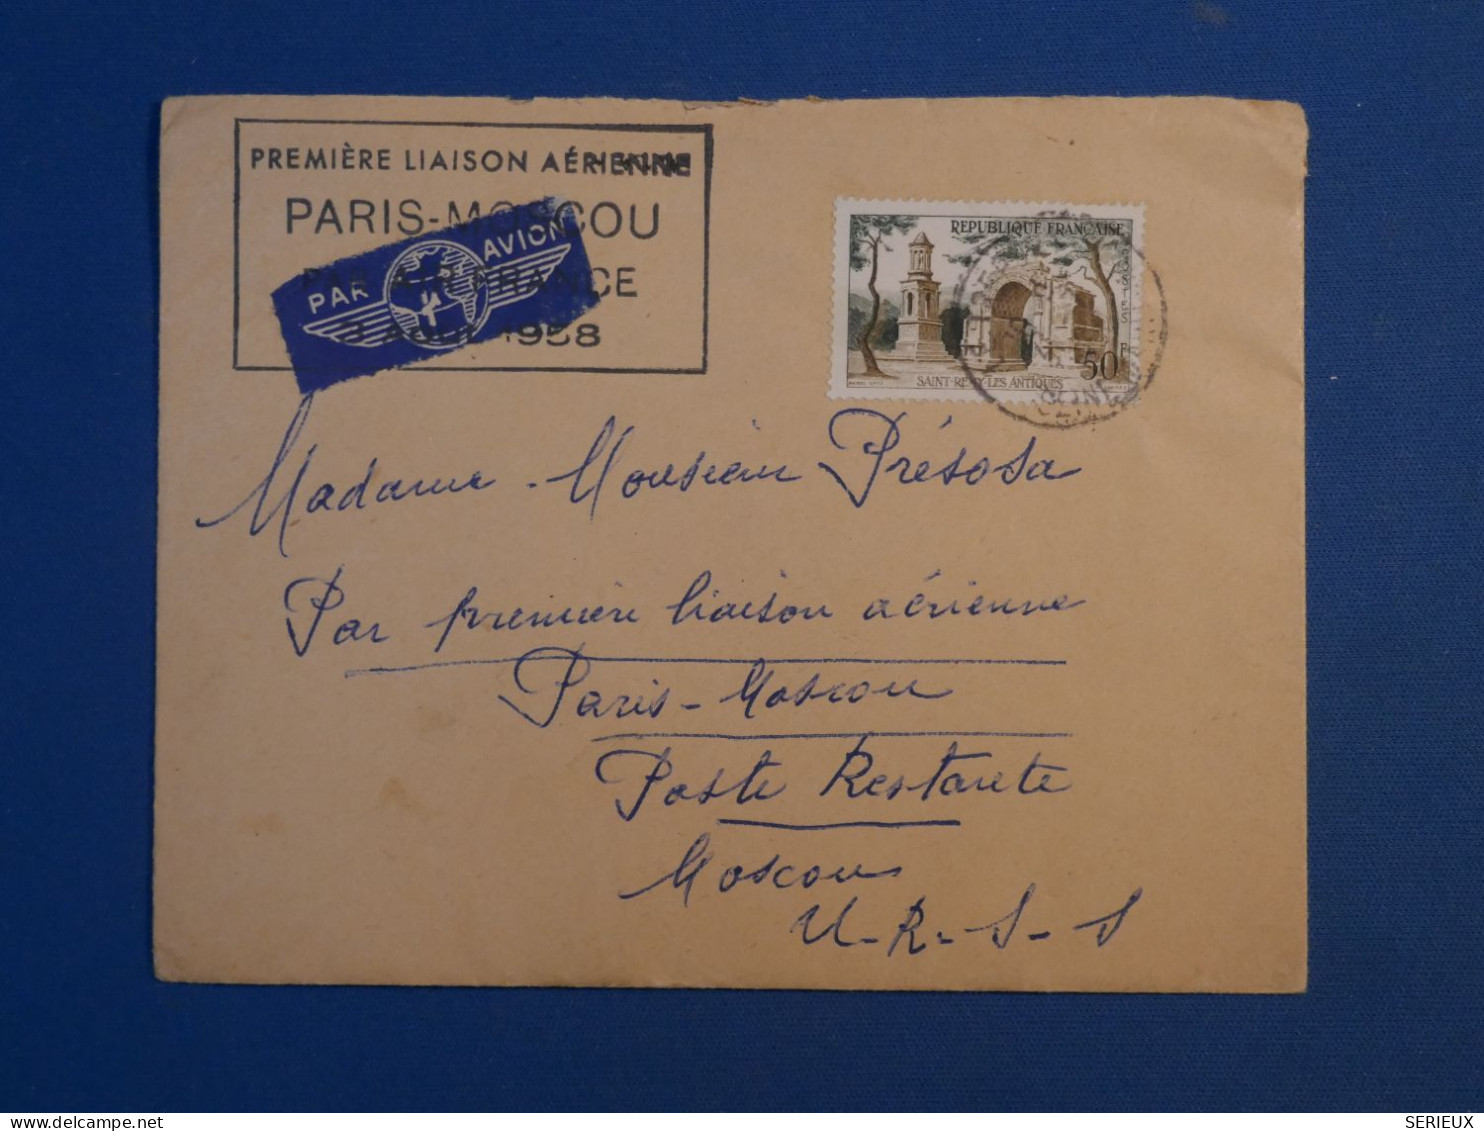 PREMIÈRE LIAISON AÉRIENNE
PARIS-MOSCOU
PAR AIR FRANCE
1958
PAR AVION
REPUBLIQUE FRANÇAISE
POSTES
50F
SAINT-REMY-LES ANTIQUES
Madame - Monsieur Présosa
Par première liaison aérienne
Paris-Moscou
Poste Restante
Moscou
U-R-S-S
SERIEUX